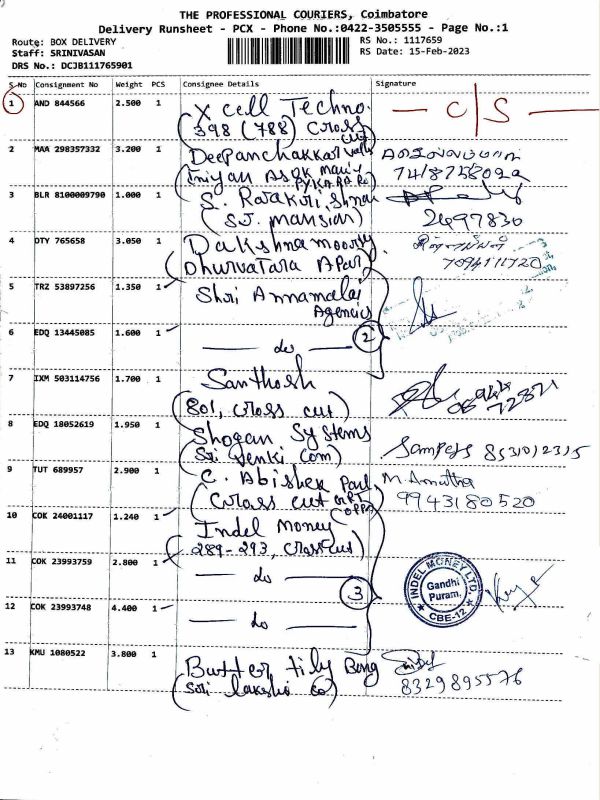 THE PROFESSIONAL COURIERS, Coimbatore
Delivery Runsheet - PCX - Phone No.:0422-3505555 - Page No.:1
Route: BOX DELIVERY
Staff: SRINIVASAN
DRS No.: DCJB111765901
RS No.: 1117659
RS Date: 15-Feb-2023
S.No Consignment No Weight PCS Consignee Details Signature
1 AND 844566 2.500 1 X cell Techno. C/S
398 (788) Cross cut
2 MAA 298357332 3.200 1 Deepanchakkaravathi
3 BLR 8100009790 1.000 1 S. Ratakrishnan
(SJ. mansion) 2497830
4 DTY 765658 3.050 1 Dakshnamoorty
(Dhurvatara Apar) 7094111720
5 TRZ 53897256 1.350 1 Shri Annamalai
Agencies
6 EDQ 13445085 1.600 1 — do — 2
7 IXM 503114756 1.700 1 Santhosh
(801, cross cut)
8 EDQ 18052619 1.950 1 Shogan Systems
(Sri Venki Com) Sampajs 8531012315
9 TUT 689957 2.900 1 C. Abishek Paul M. Amutha
(Cross cut opp) 9943180520
10 COK 24001117 1.240 1 Indel Money
289-293, Crosscut)
11 COK 23993759 2.800 1 — do — 3
INDEL MONEY LTD.
Gandhi
Puram,
CBE-12
12 COK 23993748 4.400 1 — do —
13 KMU 1080522 3.800 1 Butter fily Bong
(Sri lakshi Co) 8329895576